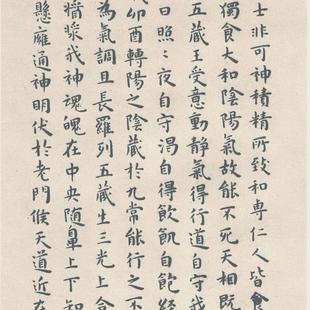 士非可神積精所致和専仁人皆食
獨食大和陰陽氣故能不死天相既
五藏王受意動靜氣得行道自守我
日照〻夜自守渴自得飲飢自飽經
藏卯酉轉陽之陰藏於九常能行之不
為氣調且長羅列五藏生三光上合
醬漿我神魂魄在中央随鼻上下知
懸廱通神明伏於老門候天道近在